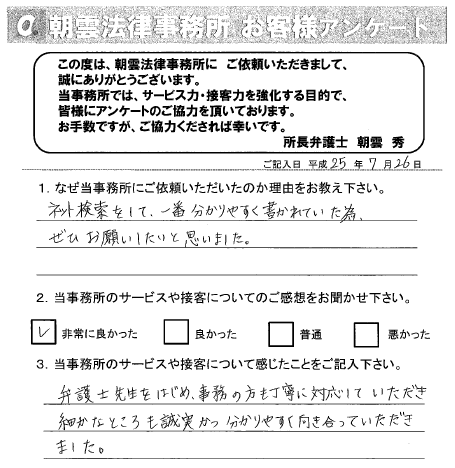 α 朝雲法律事務所 お客様アンケート
この度は、朝雲法律事務所に ご依頼いただきまして、
誠にありがとうございます。
当事務所では、サービス力・接客力を強化する目的で、
皆様にアンケートのご協力を頂いております。
お手数ですが、ご協力くだされば幸いです。
所長弁護士 朝雲 秀
ご記入日 平成 25 年 7 月 26 日
1. なぜ当事務所にご依頼いただいたのか理由をお教え下さい。
ネット検索をして、一番分かりやすく書かれていた為、
ぜひお願いしたいと思いました。
2. 当事務所のサービスや接客についてのご感想をお聞かせ下さい。
✓ 非常に良かった 良かった 普通 悪かった
3. 当事務所のサービスや接客について感じたことをご記入下さい。
弁護士先生をはじめ、事務の方も丁寧に対応して いただき
細かなところも誠実かつ 分かりやすく向き合っていただき
ました。